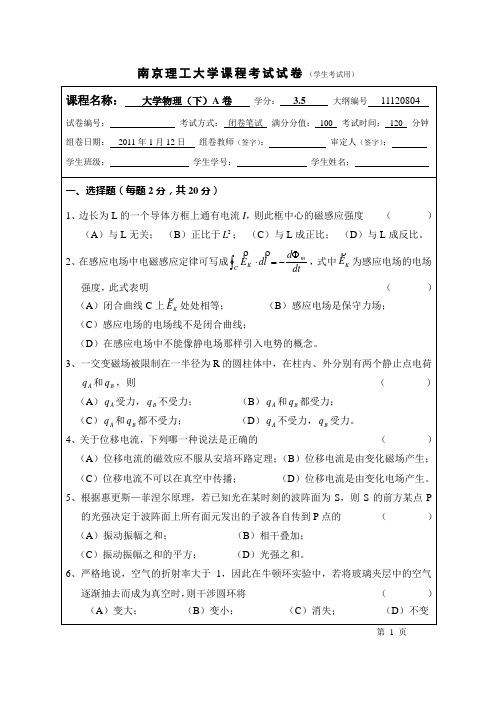 南京理工大学课程考试试卷（学生考试用）
课程名称： 大学物理（下）A卷 学分： 3.5 大纲编号 11120804
试卷编号： 考试方式： 闭卷笔试 满分分值： 100 考试时间： 120 分钟
组卷日期： 2011年1月12日 组卷教师（签字）： 审定人（签字）：
学生班级： 学生学号： 学生姓名：
一、选择题（每题2分，共20分）
1、边长为L的一个导体方框上通有电流I，则此框中心的磁感应强度 （ ）
（A）与L无关； （B）正比于L²； （C）与L成正比； （D）与L成反比。
2、在感应电场中电磁感应定律可写成∮_C E_K · dl = − dΦ_m/dt，式中E_K为感应电场的电场
强度，此式表明 （ ）
（A）闭合曲线C上E_K处处相等； （B）感应电场是保守力场；
（C）感应电场的电场线不是闭合曲线；
（D）在感应电场中不能像静电场那样引入电势的概念。
3、一交变磁场被限制在一半径为R的圆柱体中，在柱内、外分别有两个静止点电荷
q_A和q_B，则 （ ）
（A）q_A受力，q_B不受力； （B）q_A和q_B都受力；
（C）q_A和q_B都不受力； （D）q_A不受力，q_B受力。
4、关于位移电流，下列哪一种说法是正确的 （ ）
（A）位移电流的磁效应不服从安培环路定理；（B）位移电流是由变化磁场产生；
（C）位移电流不可以在真空中传播； （D）位移电流是由变化电场产生。
5、根据惠更斯—菲涅尔原理，若已知光在某时刻的波阵面为S，则S的前方某点P
的光强决定于波阵面上所有面元发出的子波各自传到P点的 （ ）
（A）振动振幅之和； （B）相干叠加；
（C）振动振幅之和的平方； （D）光强之和。
6、严格地说，空气的折射率大于1，因此在牛顿环实验中，若将玻璃夹层中的空气
逐渐抽去而成为真空时，则干涉圆环将 （ ）
（A）变大； （B）变小； （C）消失； （D）不变
第 1 页